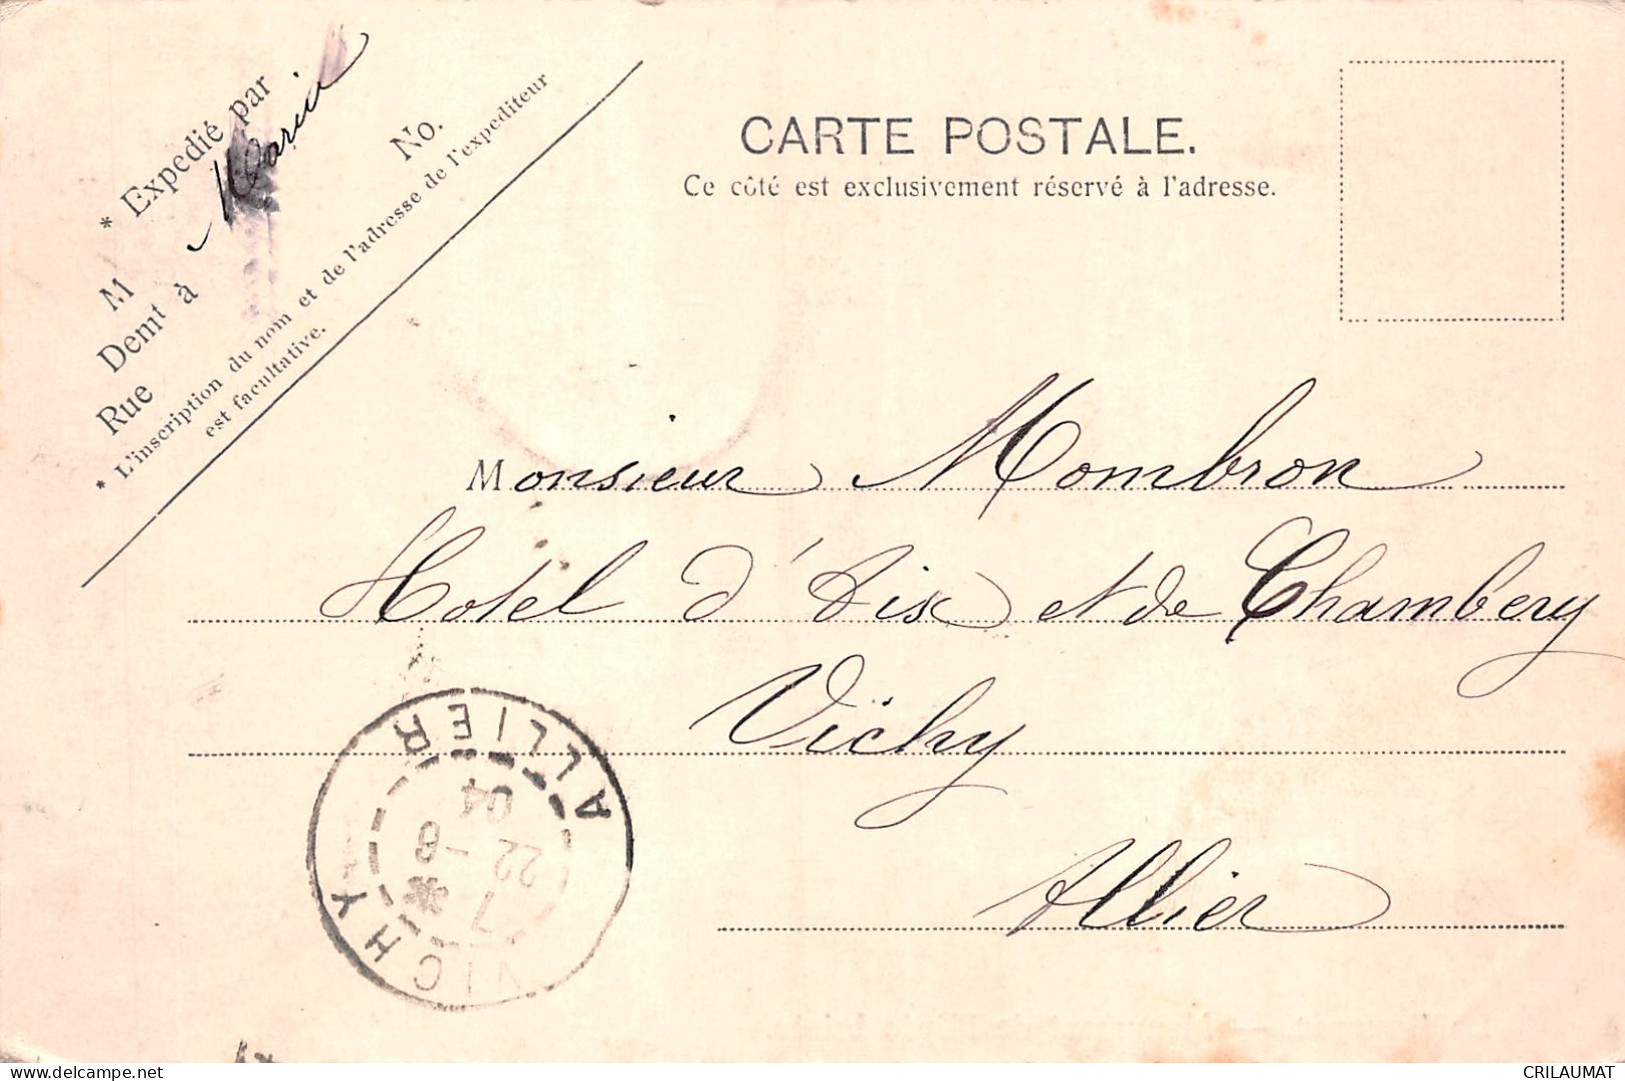 * Expedié par
Maria
M
Demt à
Rue
No.
* L'inscription du nom et de l'adresse de l'expediteur
est facultative.
CARTE POSTALE.
Ce côté est exclusivement réservé à l'adresse.
Monsieur Mombron
Hotel d'Aix et de Chambery
Vichy
Allier
VICHY
ALLIER
7
22 - 6
04
delcampe.net
CRILAUMAT